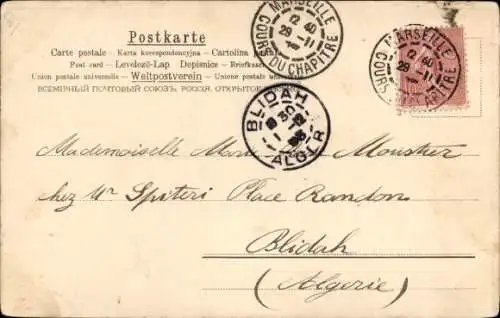 Postkarte
Carte postale — Karta korespondencyjna — Cartolina
Post card — Levelező-Lap Dopisnice — Briefkaart
Union postale universelle — Weltpostverein — Unione postale
ВСЕМІРНЫЙ ПОЧТОВЫЙ СОЮЗЪ, РОССІЯ, ОТКРЫТОЕ
MARSEILLE
12 40
29 -11
COURS DU CHAPITRE
MARSEILLE
12 40
29 -11
COURS CHAPITRE
BLIDAH
8 30
ALGER
Mademoiselle Mouster
chez Mr Spiteri Place Randon
Blidah
(Algerie)